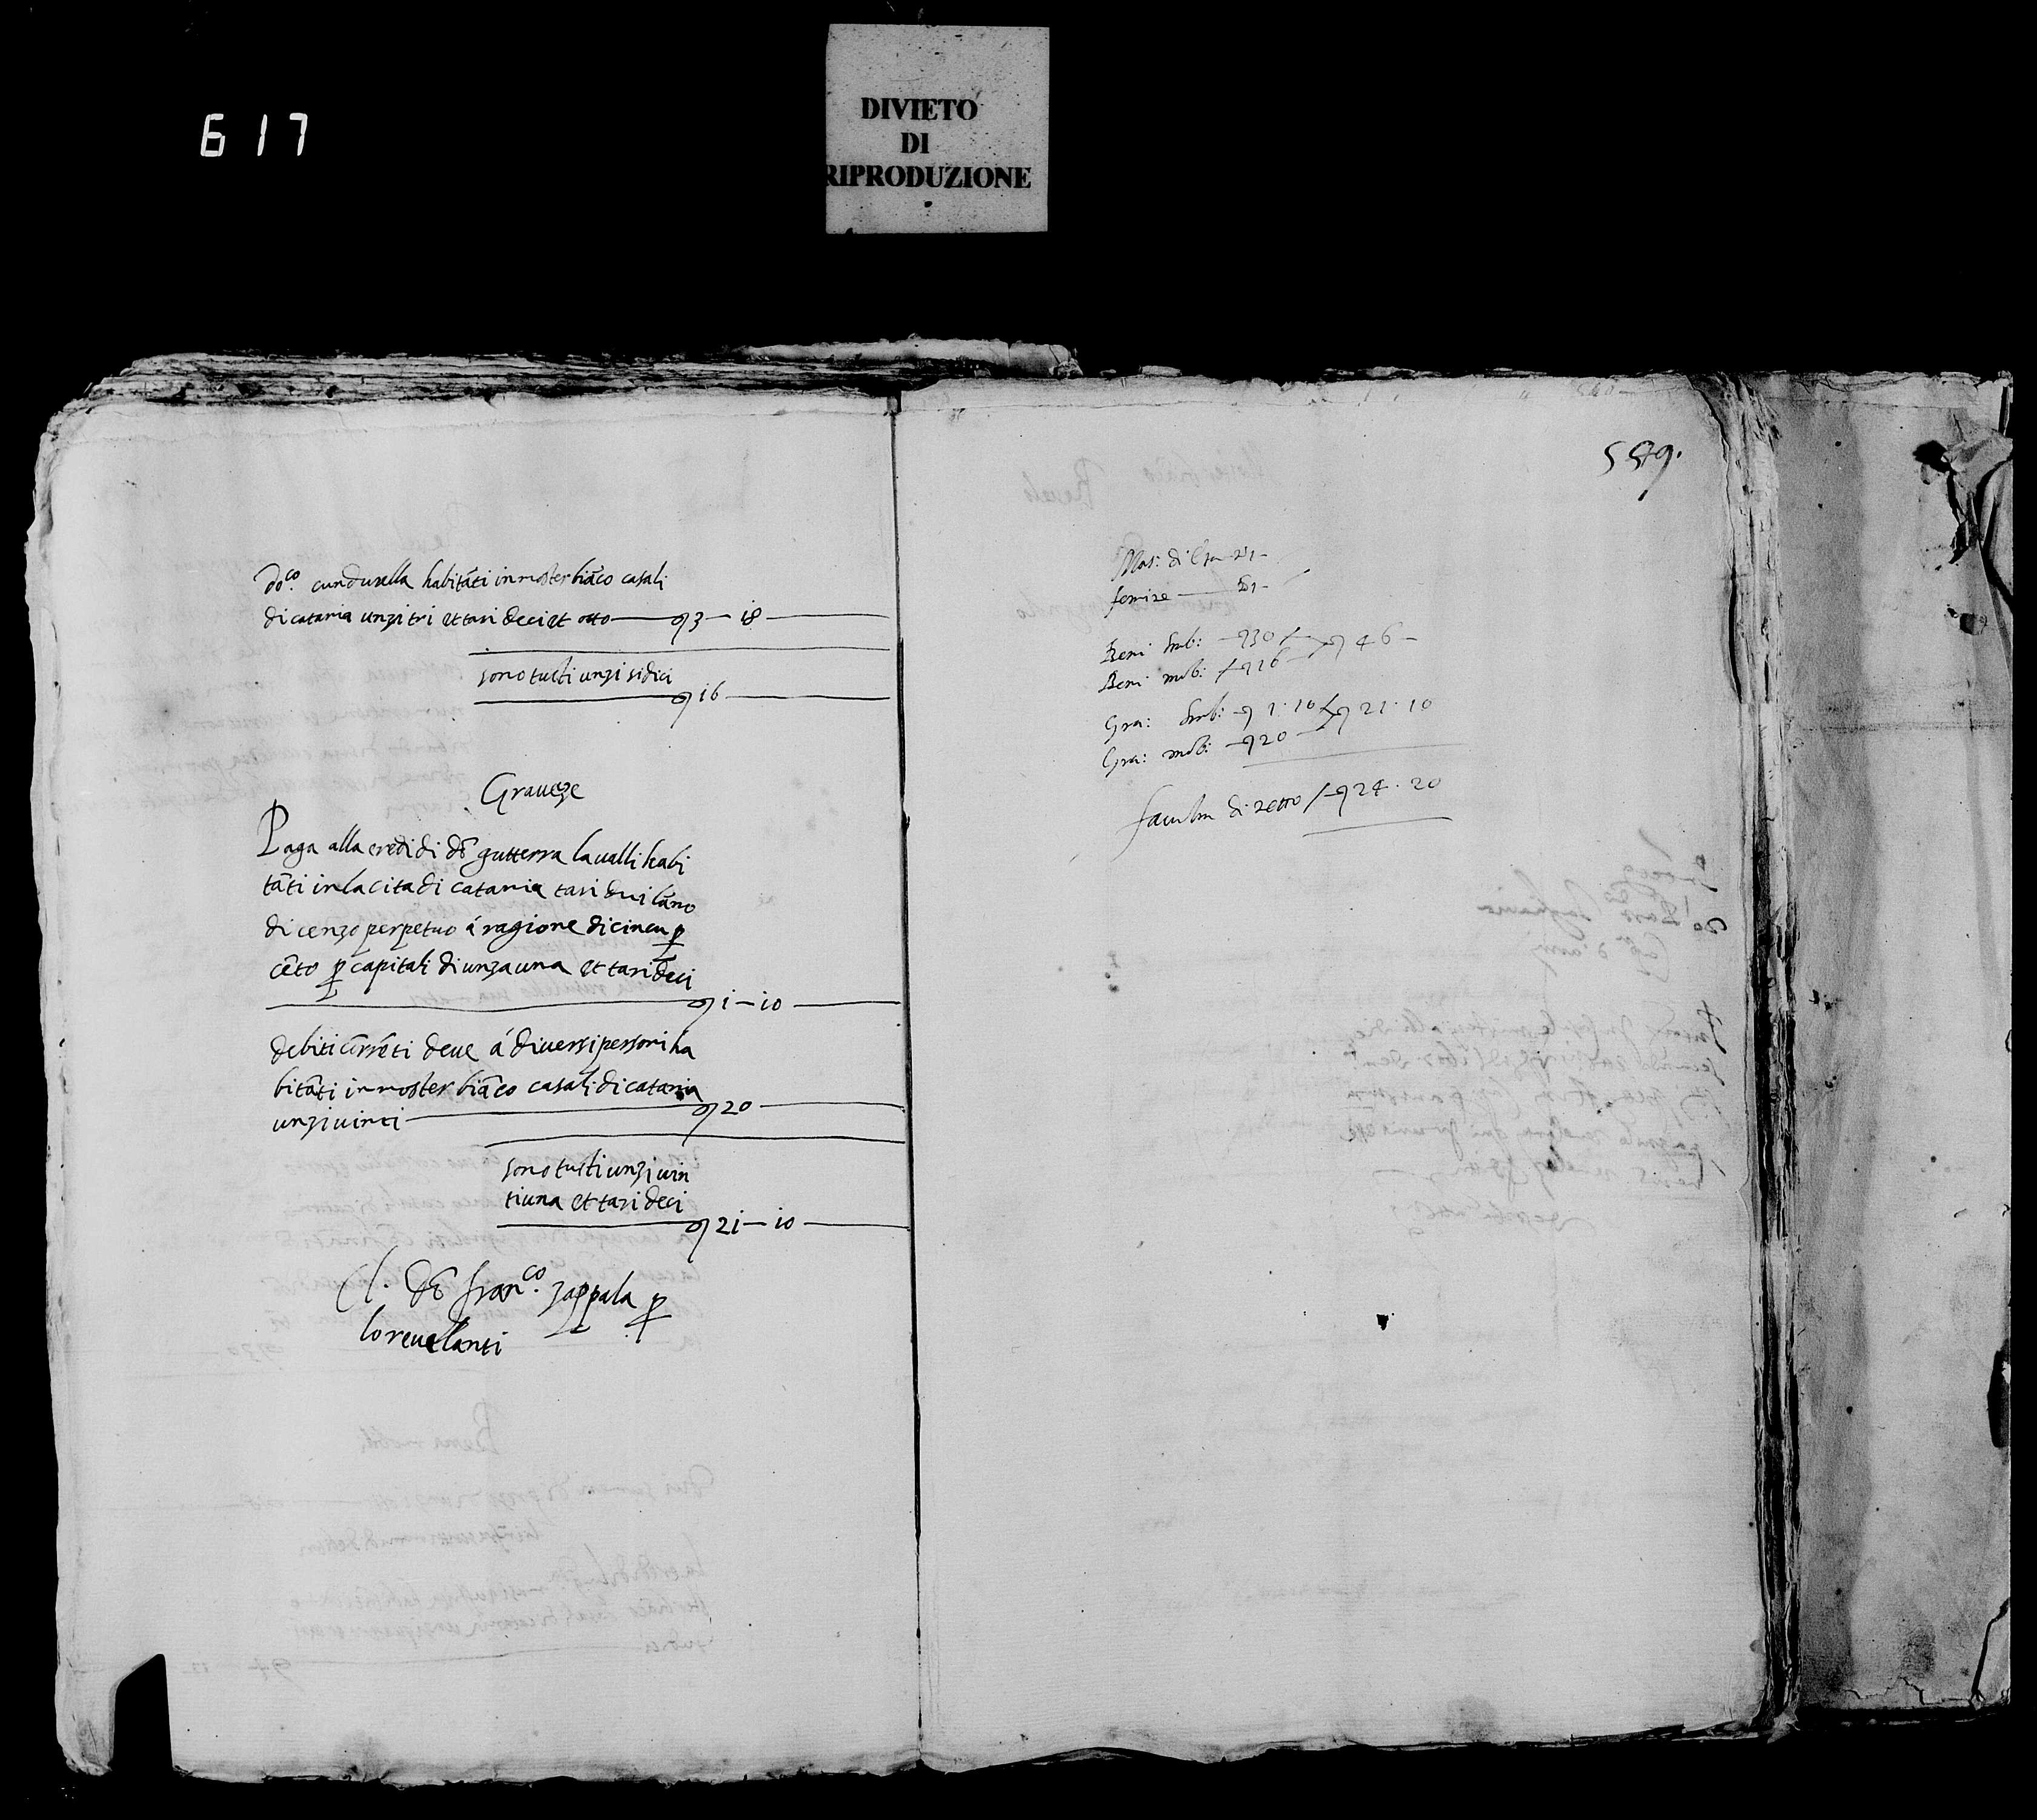 617
DIVIETO
DI
RIPRODUZIONE
do.co cundurella habitāti in moster biāco casali
di catania unzi tri et tari deci et otto 3 — 18
sono tutti unzi sidici
16
Graueze
Paga alla eredi di dō gutterra la ualli habi
tāti in la cita di catania tari dui lāno
di cenzo perpetuo á ragione di cincu p
cēto p capitali di unza una et tari deci
1 — 10
debiti cōrrēti deue á diuersi persori ha
bitāti in moster biāco casali di catania
unzi uinti 20
sono tutti unzi uin
ti una et tari deci
21 — 10
Cl. dō fran.co zappala p
lo reuelanti
589.
Mas: di
femine
Beni : 30 46
Beni mob: 16
Gra: : 1.10 21.10
Gra: mob: 20
di netto 24.20